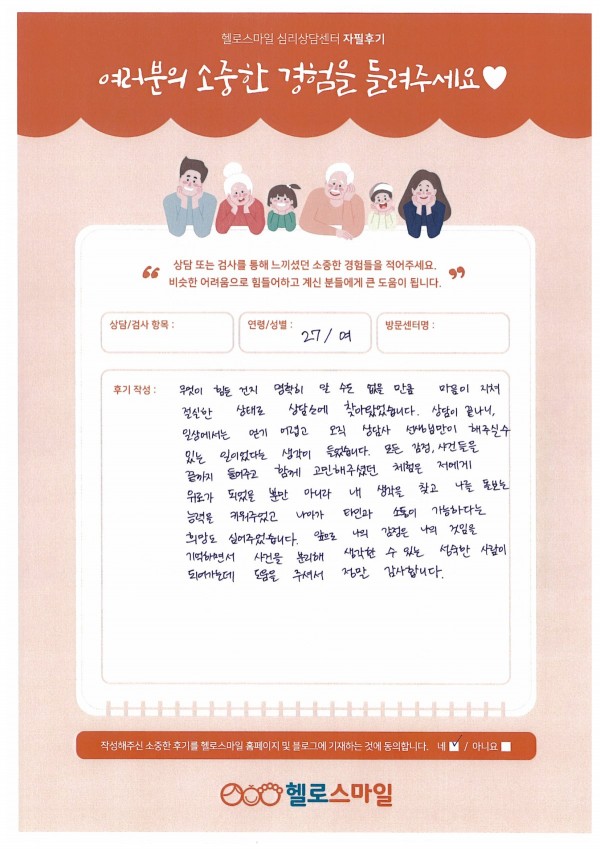 헬로스마일 심리상담센터 자필후기
여러분의 소중한 경험을 들려주세요♥
“ 상담 또는 검사를 통해 느끼셨던 소중한 경험들을 적어주세요. ”
비슷한 어려움으로 힘들어하고 계신 분들에게 큰 도움이 됩니다.
상담/검사 항목 :
연령/성별 : 27 / 여
방문센터명 :
후기 작성 : 무엇이 힘든 건지 명확히 알 수도 없을 만큼 마음이 지쳐
절실한 상태로 상담소에 찾아왔었습니다. 상담이 끝나니,
일상에서는 얻기 어렵고 오직 상담사 선생님만이 해주실 수
있는 일이었다는 생각이 들었습니다. 모든 감정, 사건들을
끝까지 들어주고 함께 고민해주셨던 체험은 저에게
위로가 되었을 뿐만 아니라 내 생각을 찾고 나를 돌보는
능력을 키워주었고 나아가 타인과 소통이 가능하다는
희망도 심어주었습니다. 앞으로 나의 감정은 나의 것임을
기억하면서 사건을 분리해 생각할 수 있는 성숙한 사람이
되어가는데 도움을 주셔서 정말 감사합니다.
작성해주신 소중한 후기를 헬로스마일 홈페이지 및 블로그에 기재하는 것에 동의합니다. 네 ☑ / 아니요 ☐
헬로스마일